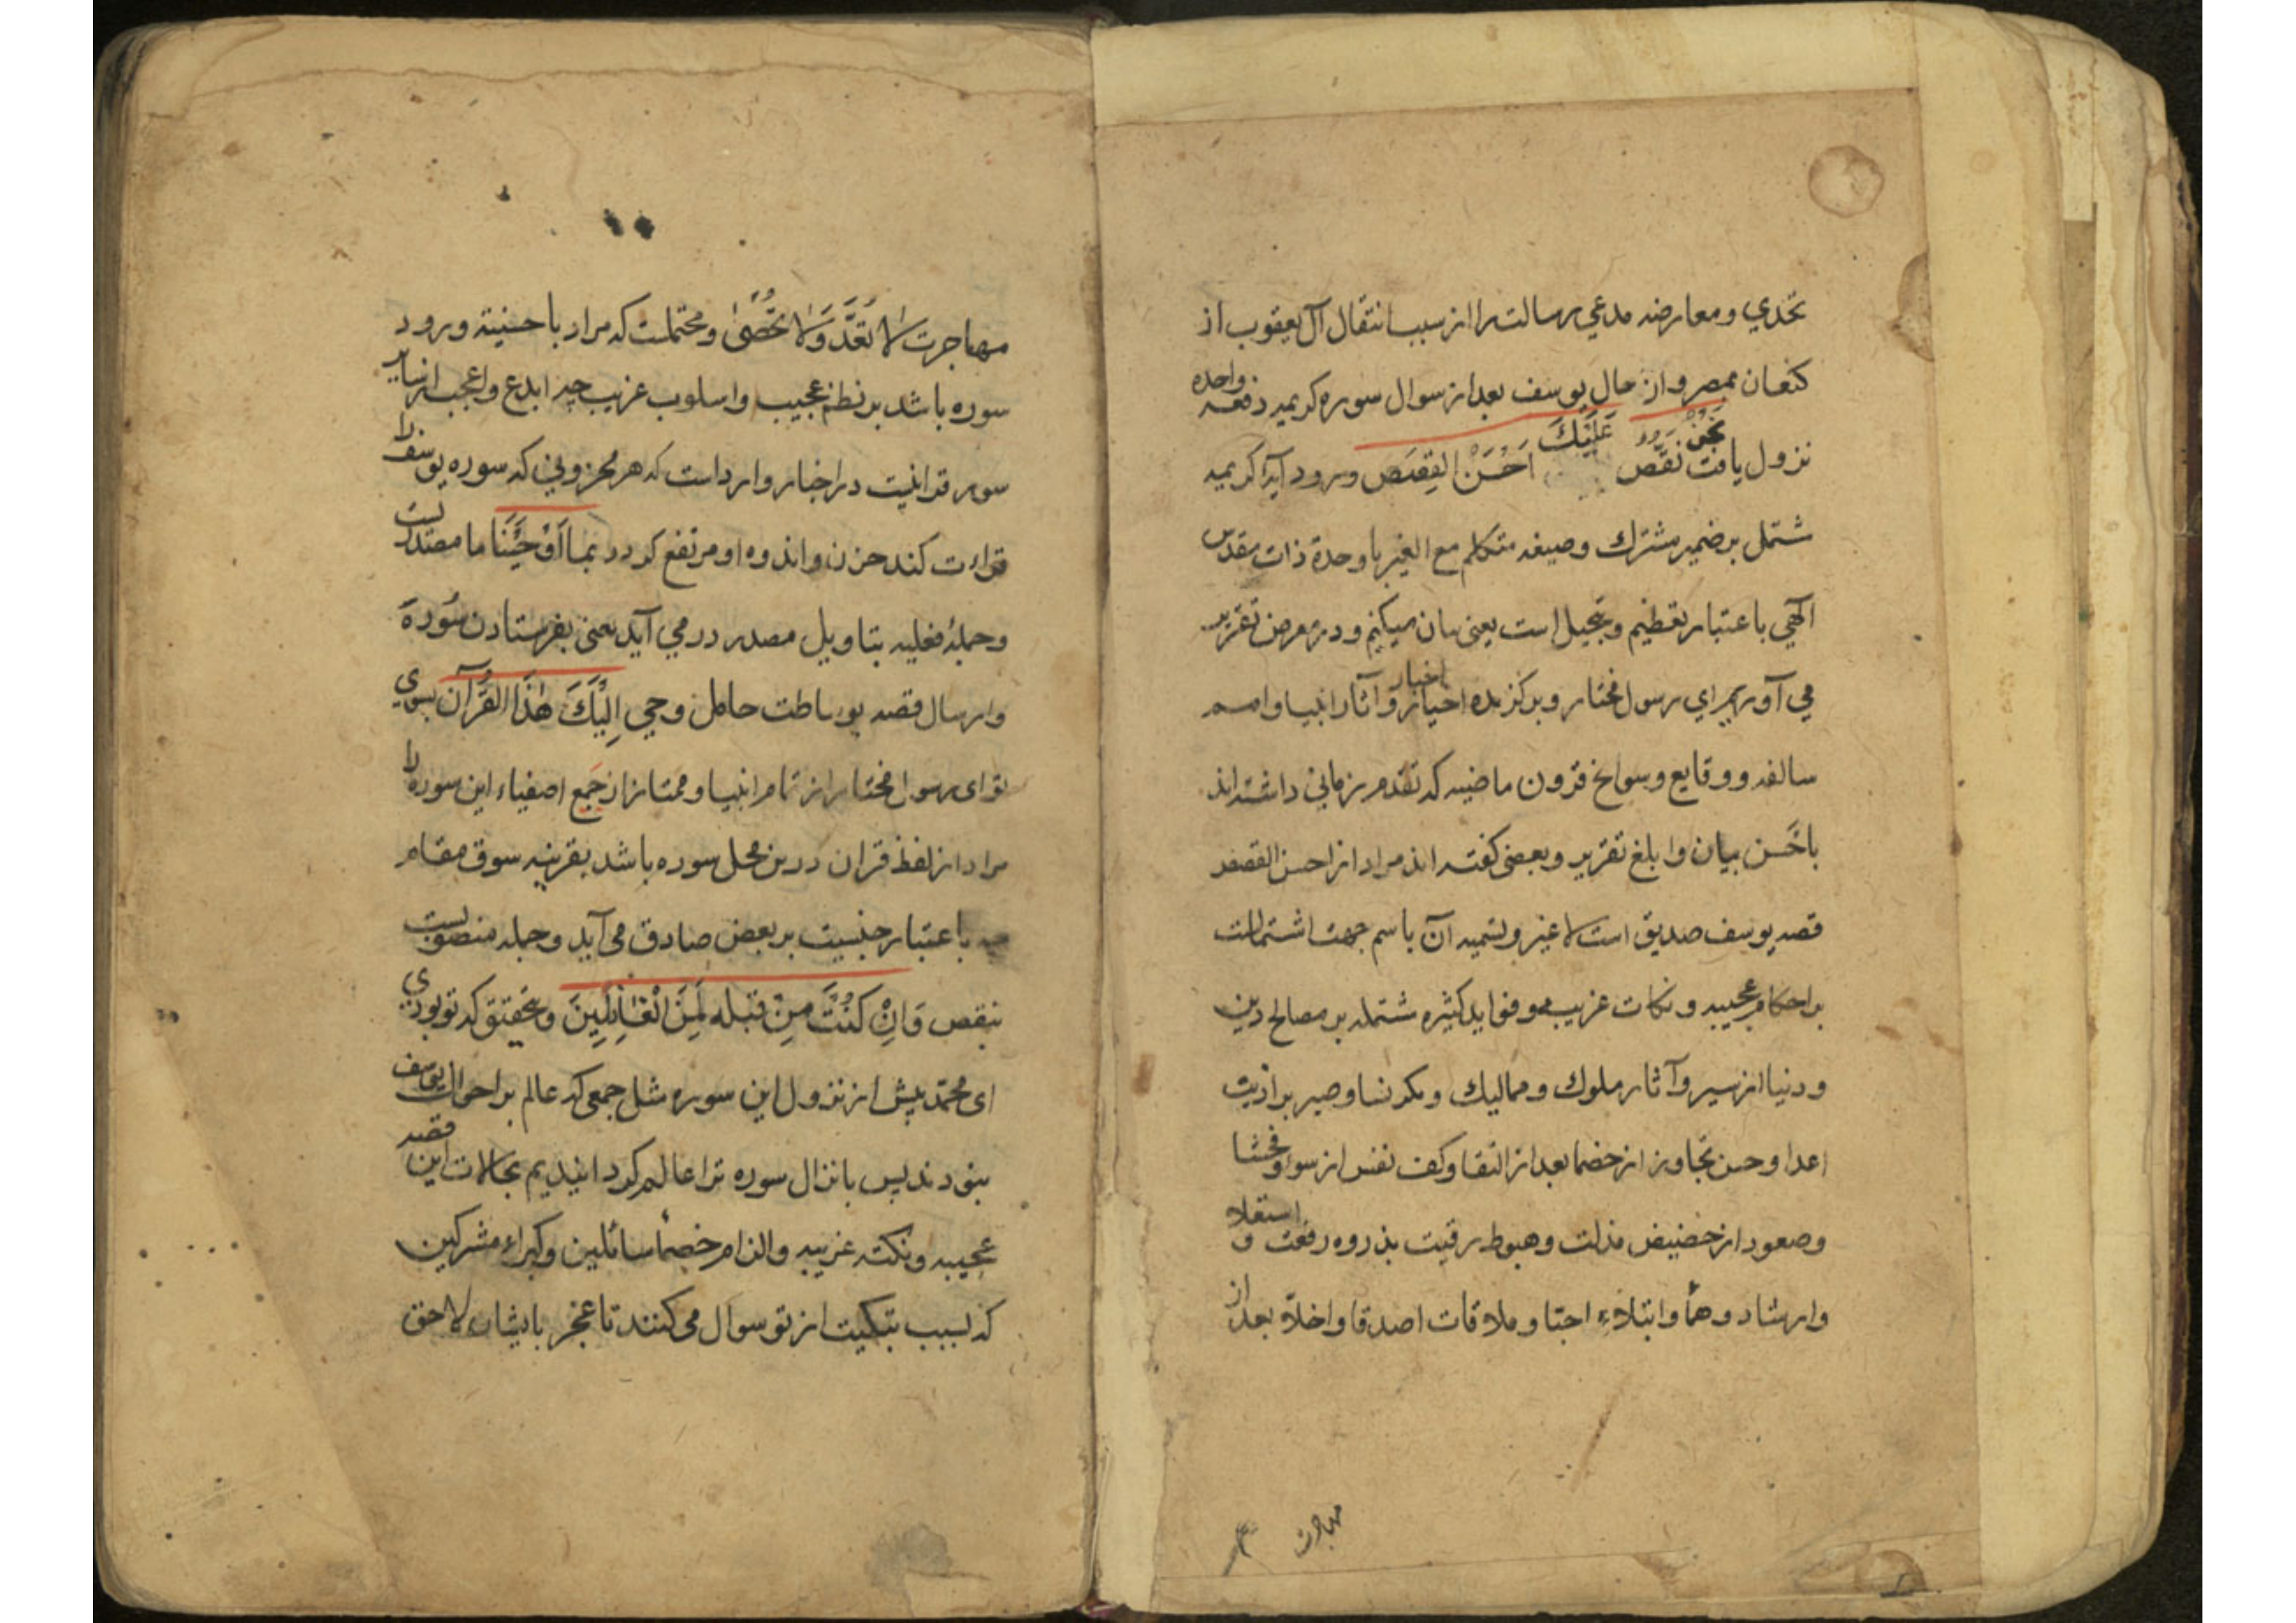 تحدي ومعارضه مدعي رسالت را از سبب انتقال آل يعقوب از
كنعان بمصر و از حال يوسف بعد از سوال سوره كريمه دفعه واحده
نزول يافت نَحْنُ نَقُصُّ عَلَيْكَ اَحْسَنَ القِصَص و ورود آيه كريمه
شتمل بر ضمير مشترك وصيغه متكلم مع الغير با وحدة ذات مقدس
الٓهي باعتبار تعظيم و تبجيل است يعنى بيان ميكنيم و در معرض تقرير
مي آوريم اي رسول مختار و بركزيده اخيار از اخبار و آثار انبيا و امم
سالفه و وقايع و سوانح قرون ماضيه كه تقدم زماني داشته اند
باحَسن بيان و ابلغ تقرير و بعضى كفته اند مراد از احسن القصص
قصه يوسف صديق است لا غير و تسميه آن باسم جهت اشتمالت
بر احكام عجيبه و نكات غريبه و فوايد كثيره شتمله بر مصالح دين
و دنيا از سير و آثار ملوك و مماليك و مكر نسا و صبر بر اذيت
اعدا و حسن تجاوز از خصما بعد از التقا و كف نفس از سوء و فحشا
و صعود از حضيض مذلت و هبوط رقيت بذروه رفعت و استعلا
و ارشاد و ابتلاء احبا و ملاقات اصدقا و اخلا بعد از
مهاجرت
مهاجرت لا تُعَدَّ وَلا تُحْصٰى و محتملست كه مراد باحسنيه ورود
سوره باشد بر نظم عجيب و اسلوب غريب چه ابدع و اعجب از ساير
سور قرانيست در اخبار وارد است كه هر محزوني كه سوره يوسف را
قراءت كند حزن و اندوه او مرتفع كردد بما اَوْحَيْنَا ما مصدريست
و جملهٔ فعليه بتاويل مصدر در مي آيد يعنى بفرستادن سُورهَ
و ارسال قصه بوساطت حامل وحي اِلَيْكَ هٰذَا الْقُرْآن بسوي
تو اى رسول مختار از تمام انبيا و ممتاز از جَمع اصفياء اين سوره را
مراد از لفظ قران درين محل سوره باشد بقرينه سوق مقام
باعتبار جنسيت بر بعض صادق مى آيد و جمله منصوبست
بنقص وَاِنْ كُنْتَ مِنْ قَبْلِه لَمِنَ الْغَافِلِينَ و بتحقيق كه تو بودي
اى محمّد پيش از نزول اين سوره مثل جمعى كه عالم بر احوال يوسف
نبودند پس بانزال سوره ترا عالم كردانيديم بحالات اين قصه
عجيبه و نكته غريبه و الزام خصماً سائلين و كبراء مشركين
كه بسبب تبكيت از تو سوال مى كنند تا عجز بايشان لاحق